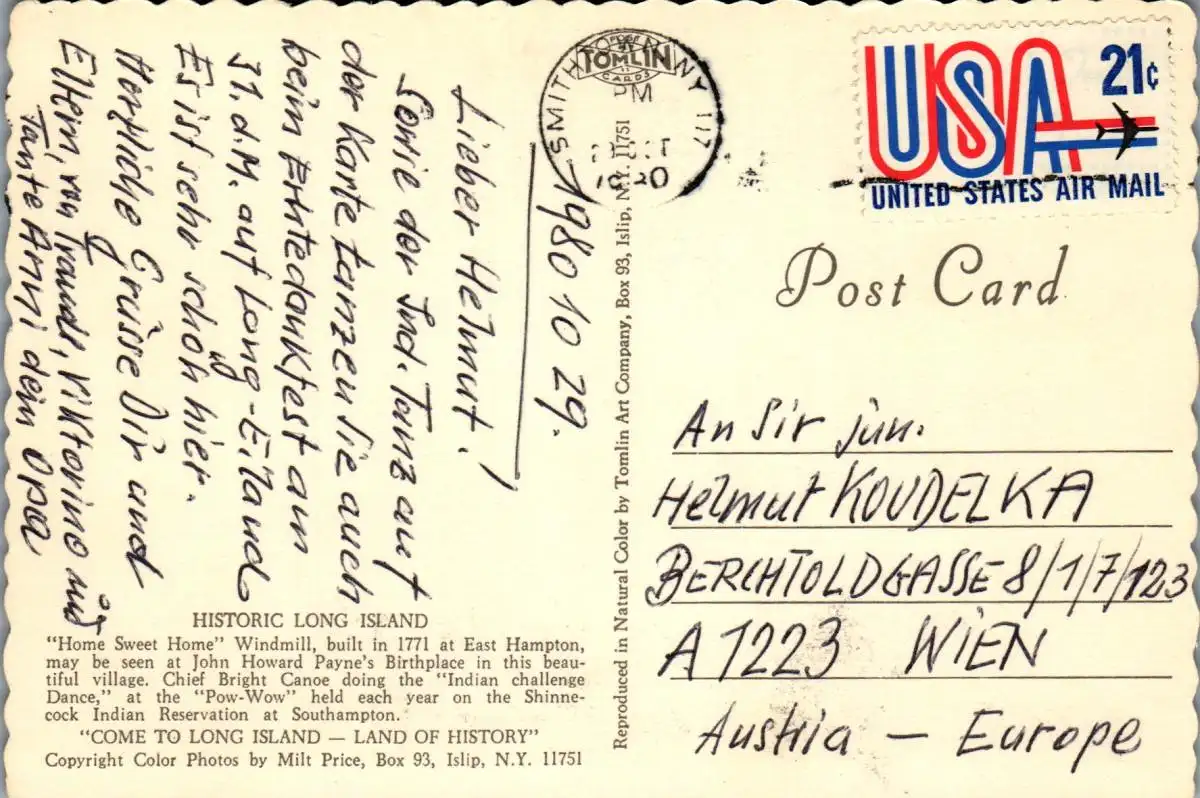 USA
21¢
UNITED STATES AIR MAIL
SMITHTOWN NY 117
TOMLIN
CARDS
PM
OCT
1980
Post Card
1980 10 29.
Lieber Helmut!
Sowie der Ind. Tanz auf
der Karte tanzen sie auch
beim Erntedankfest am
31. d.M. auf Long-Eiland
Es ist sehr schön hier.
Herzliche Grüsse Dir und
Eltern, von Traudl, Viktorino und
Tante Anni dein Opa
An Sir jun.
Helmut KOUDELKA
BERCHTOLDGASSE 8/1/7/123
A 1223 WIEN
Austria — Europe
Reproduced in Natural Color by Tomlin Art Company, Box 93, Islip, N.Y. 11751
HISTORIC LONG ISLAND
"Home Sweet Home" Windmill, built in 1771 at East Hampton,
may be seen at John Howard Payne's Birthplace in this beau-
tiful village. Chief Bright Canoe doing the "Indian challenge
Dance," at the "Pow-Wow" held each year on the Shinne-
cock Indian Reservation at Southampton.
"COME TO LONG ISLAND — LAND OF HISTORY"
Copyright Color Photos by Milt Price, Box 93, Islip, N.Y. 11751